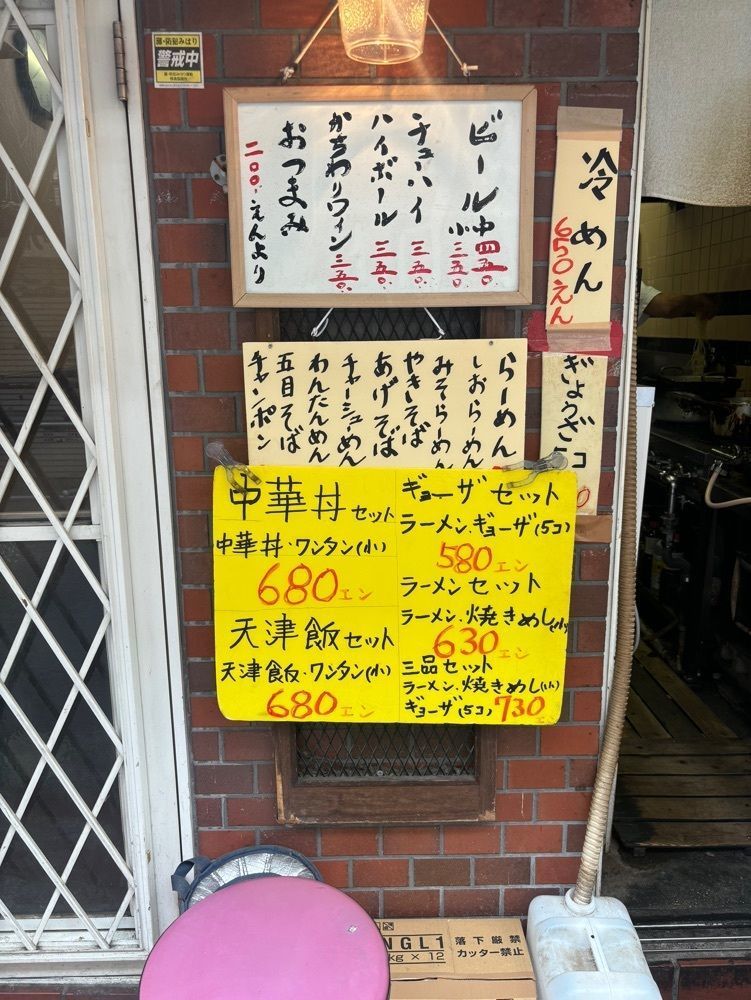 警戒中
ビール中 四五〇
小 三五〇
チューハイ 三五〇
ハイボール 三五〇
かちわりワイン 三五〇
おつまみ
二〇〇えんより
冷めん
650えん
らーめん
しおらーめん
みそらーめん
やきそば
あげそば
チャーシューめん
わんたんめん
五目そば
チャンポン
ぎょうざ5コ
中華丼セット
中華丼・ワンタン(小)
680エン
天津飯セット
天津飯・ワンタン(小)
680エン
ギョーザセット
ラーメン.ギョーザ(5コ)
580エン
ラーメンセット
ラーメン.焼きめし(小)
630エン
三品セット
ラーメン.焼きめし(小)
ギョーザ(5コ) 730エン
NGL1
kg × 12
落下厳禁
カッター禁止